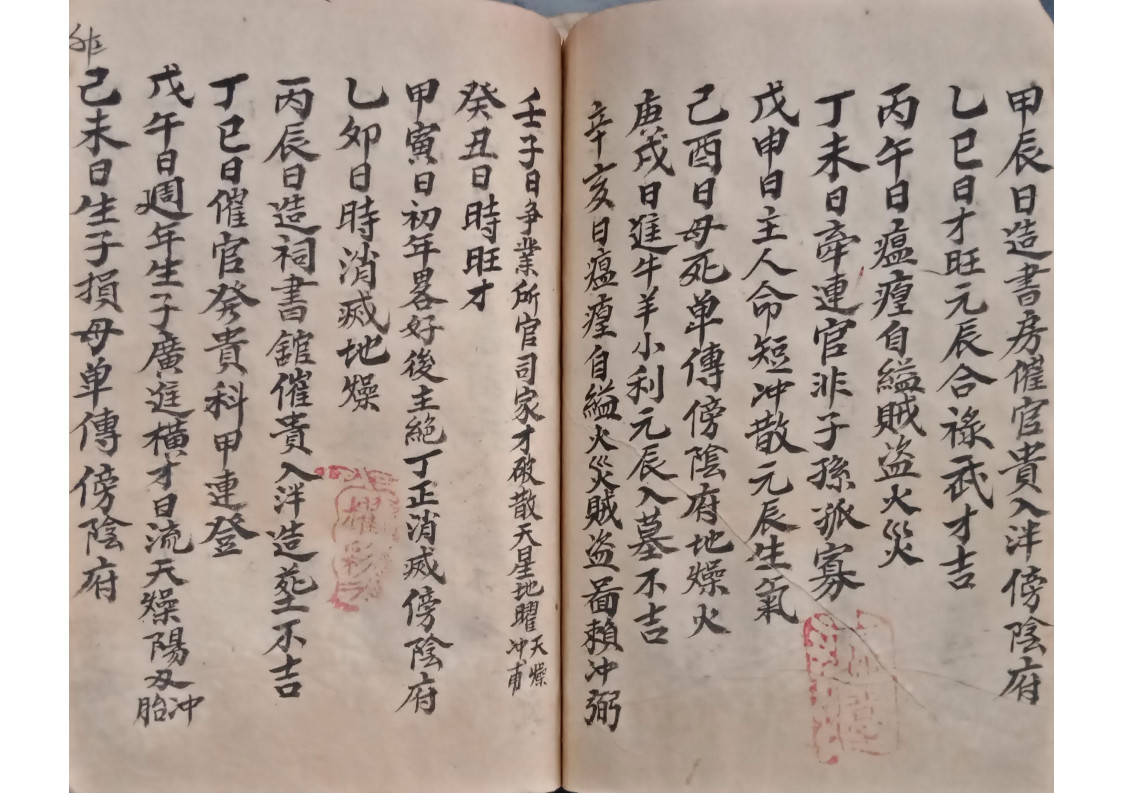 甲辰日造書房催官貴入泮傍陰府
乙巳日才旺元辰合祿武才吉
丙午日瘟㾮自縊賊盗火災
丁未日牽連官非子孫孤寡
戊申日主人命短冲散元辰生氣
己酉日母死单傳傍陰府地燥火
庚戌日進牛羊小利元辰入墓不吉
辛亥日瘟㾮自縊火災賊盗啚賴冲弼
壬子日争業所官司家才破散天星地曜天燥冲甫
癸丑日時旺才
甲寅日初年畧好後主絕丁正消威傍陰府
乙夘日時消威地燥
丙辰日造祠書舘催貴入泮造塟不吉
丁巳日催官發貴科甲連登
戊午日週年生子廣進橫才日流天燥陽及冲胎
己未日生子損母单傳傍陰府